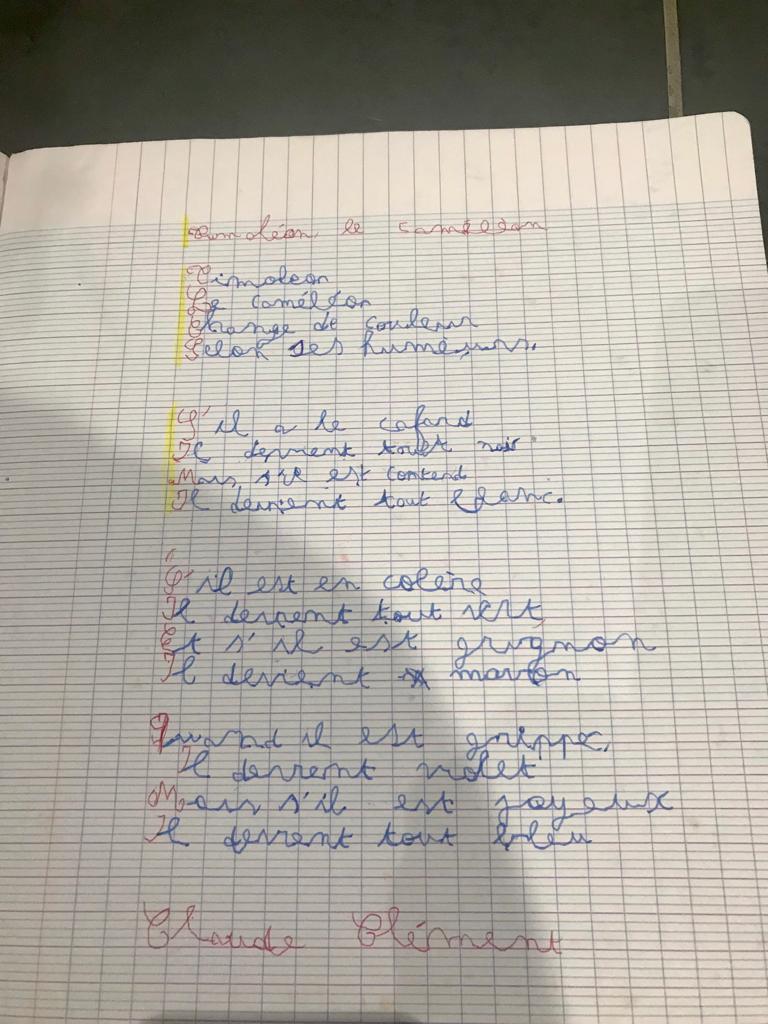 Timoléon le caméléon
Timoleon
Le caméléon
Change de couleur
Selon ses humeurs.
S'il a le cafard
Il devient tout noir
Mais s'il est contend
Il devient tout blanc.
S'il est en colère
Il devient tout vert
Et s'il est grognon
Il devient marron
Quand il est grippe,
Il devient violet
Mais s'il est joyeux
Il devient tout bleu
Claude Clément